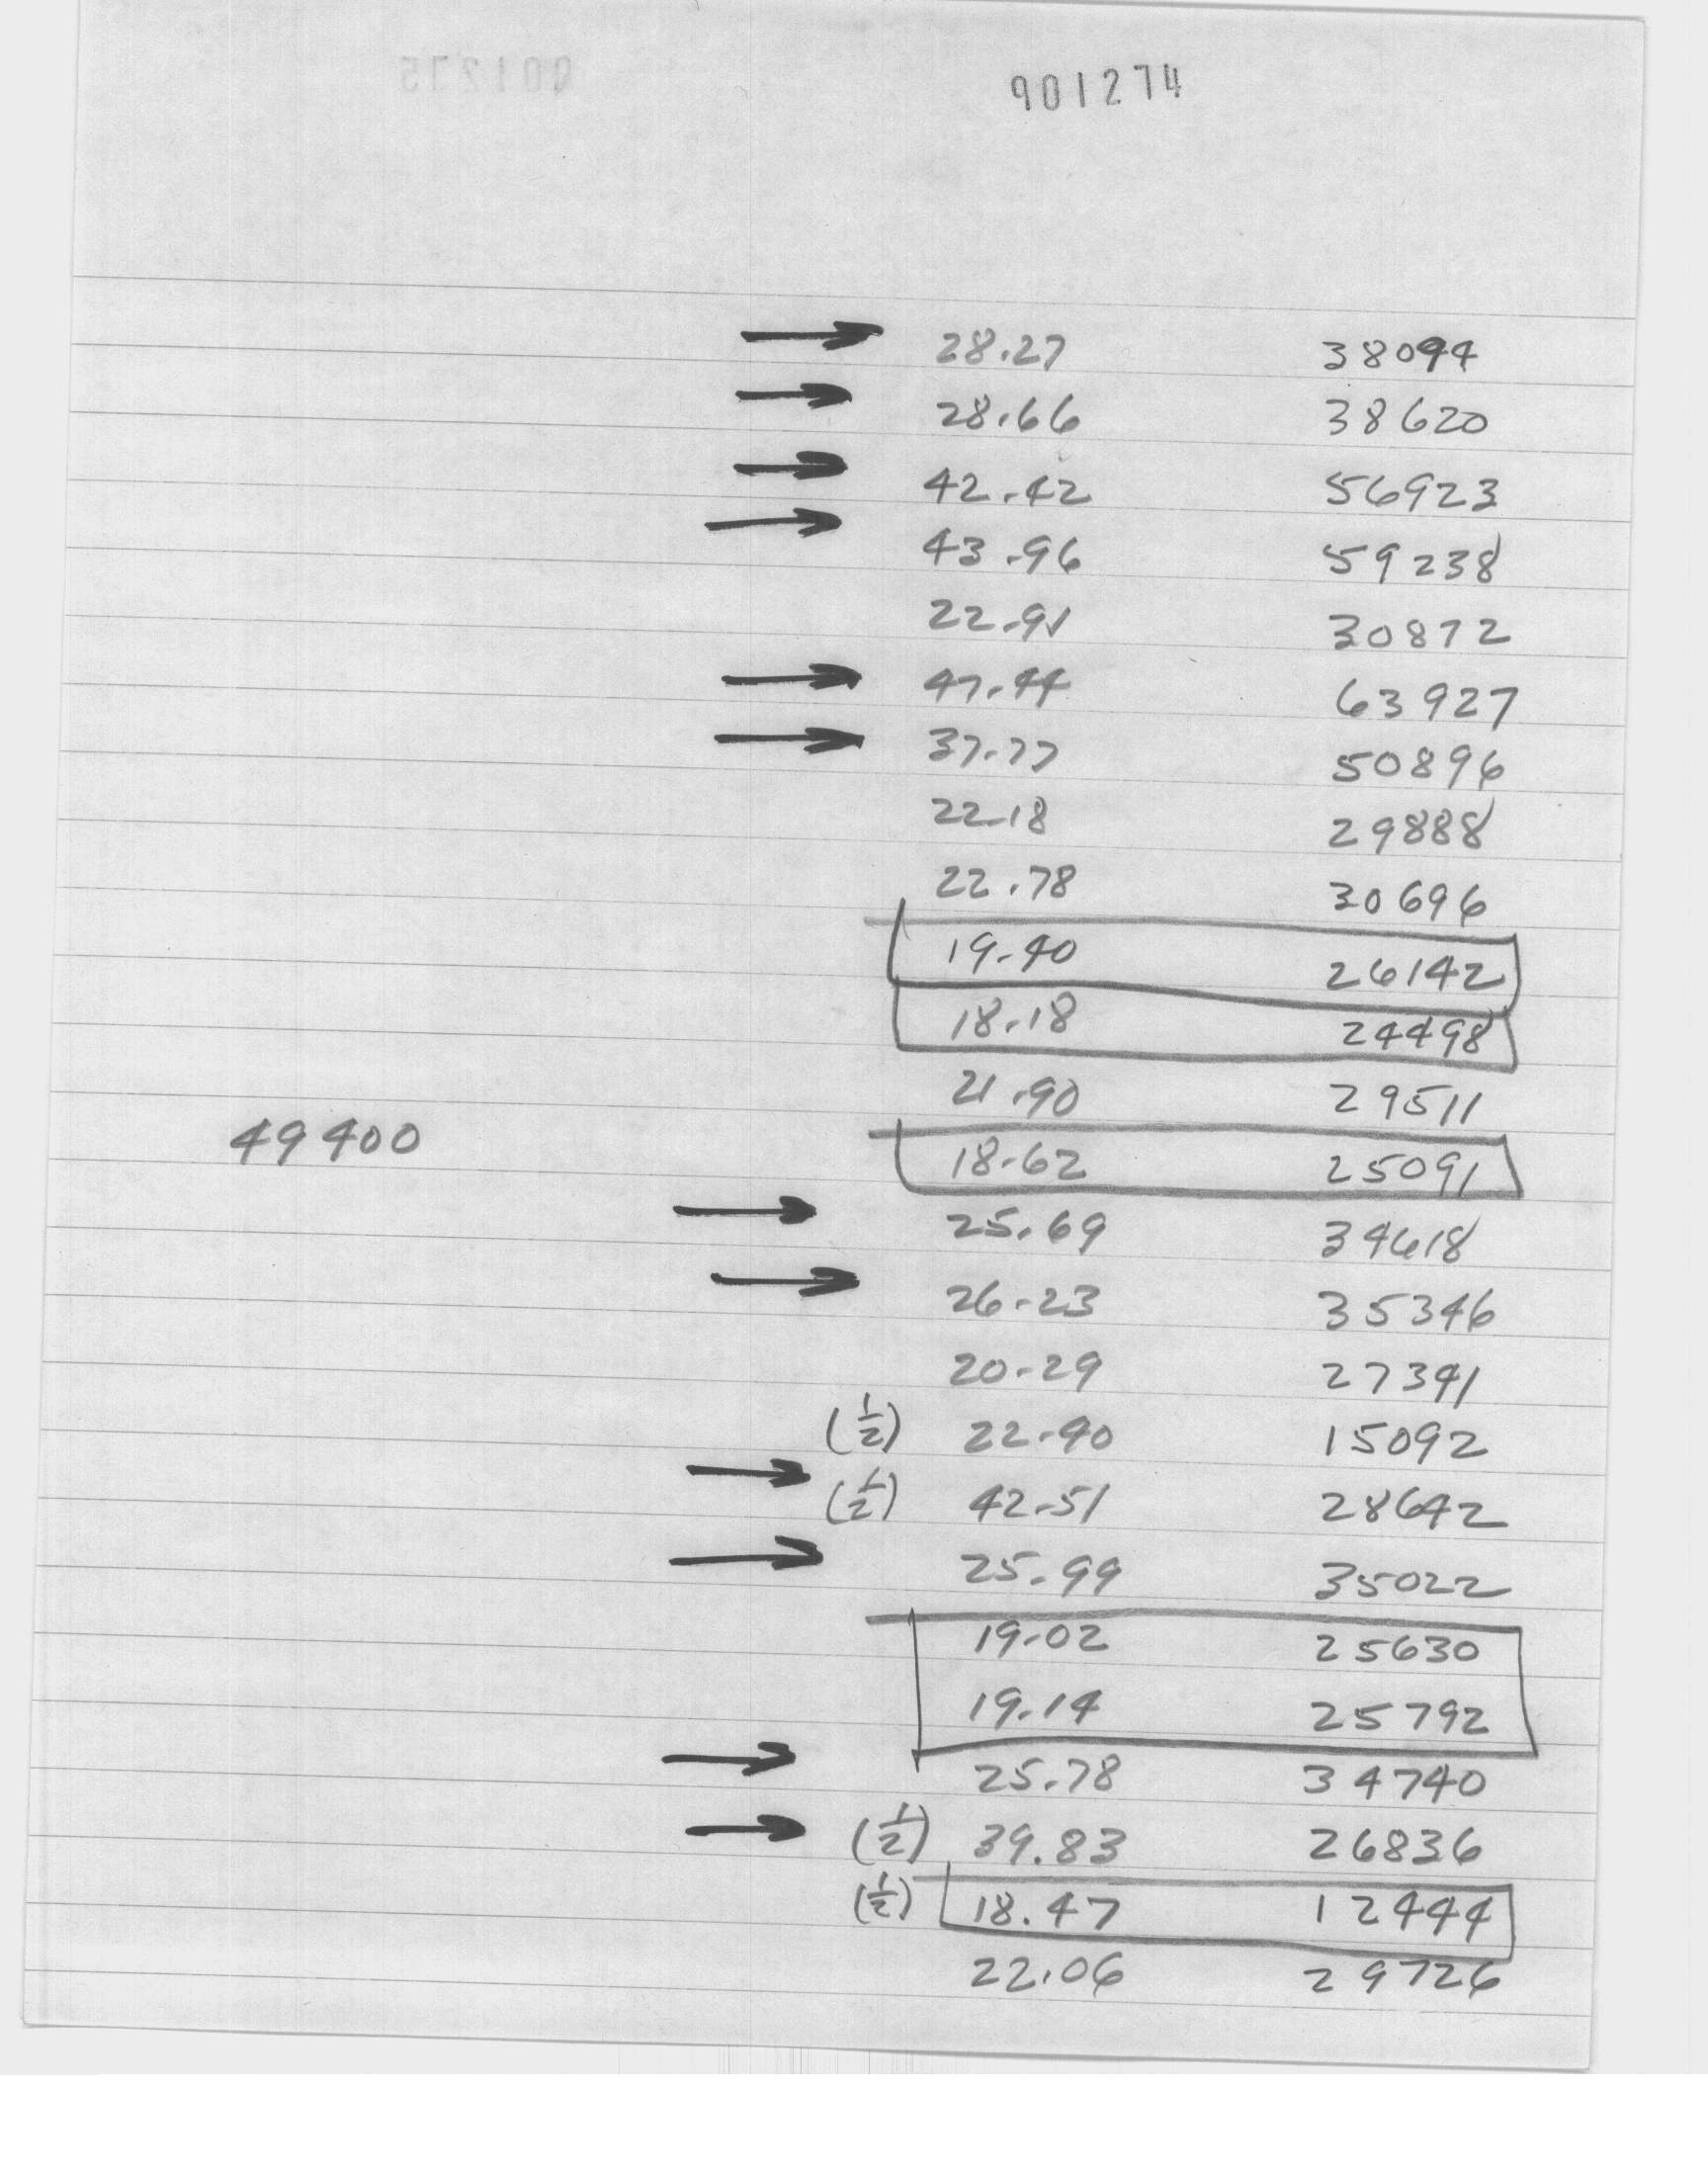 901275
901274
28.27 38094
28.66 38620
42.42 56923
43.96 59238
22.91 30872
47.44 63927
37.77 50896
22.18 29888
22.78 30696
19.40 26142
18.18 24498
21.90 29511
49400
18.62 25091
25.69 34618
26.23 35346
20.29 27341
(1/2) 22.40 15092
(1/2) 42.51 28642
25.99 35022
19.02 25630
19.14 25792
25.78 34740
(1/2) 39.83 26836
(1/2) 18.47 12444
22.06 29726